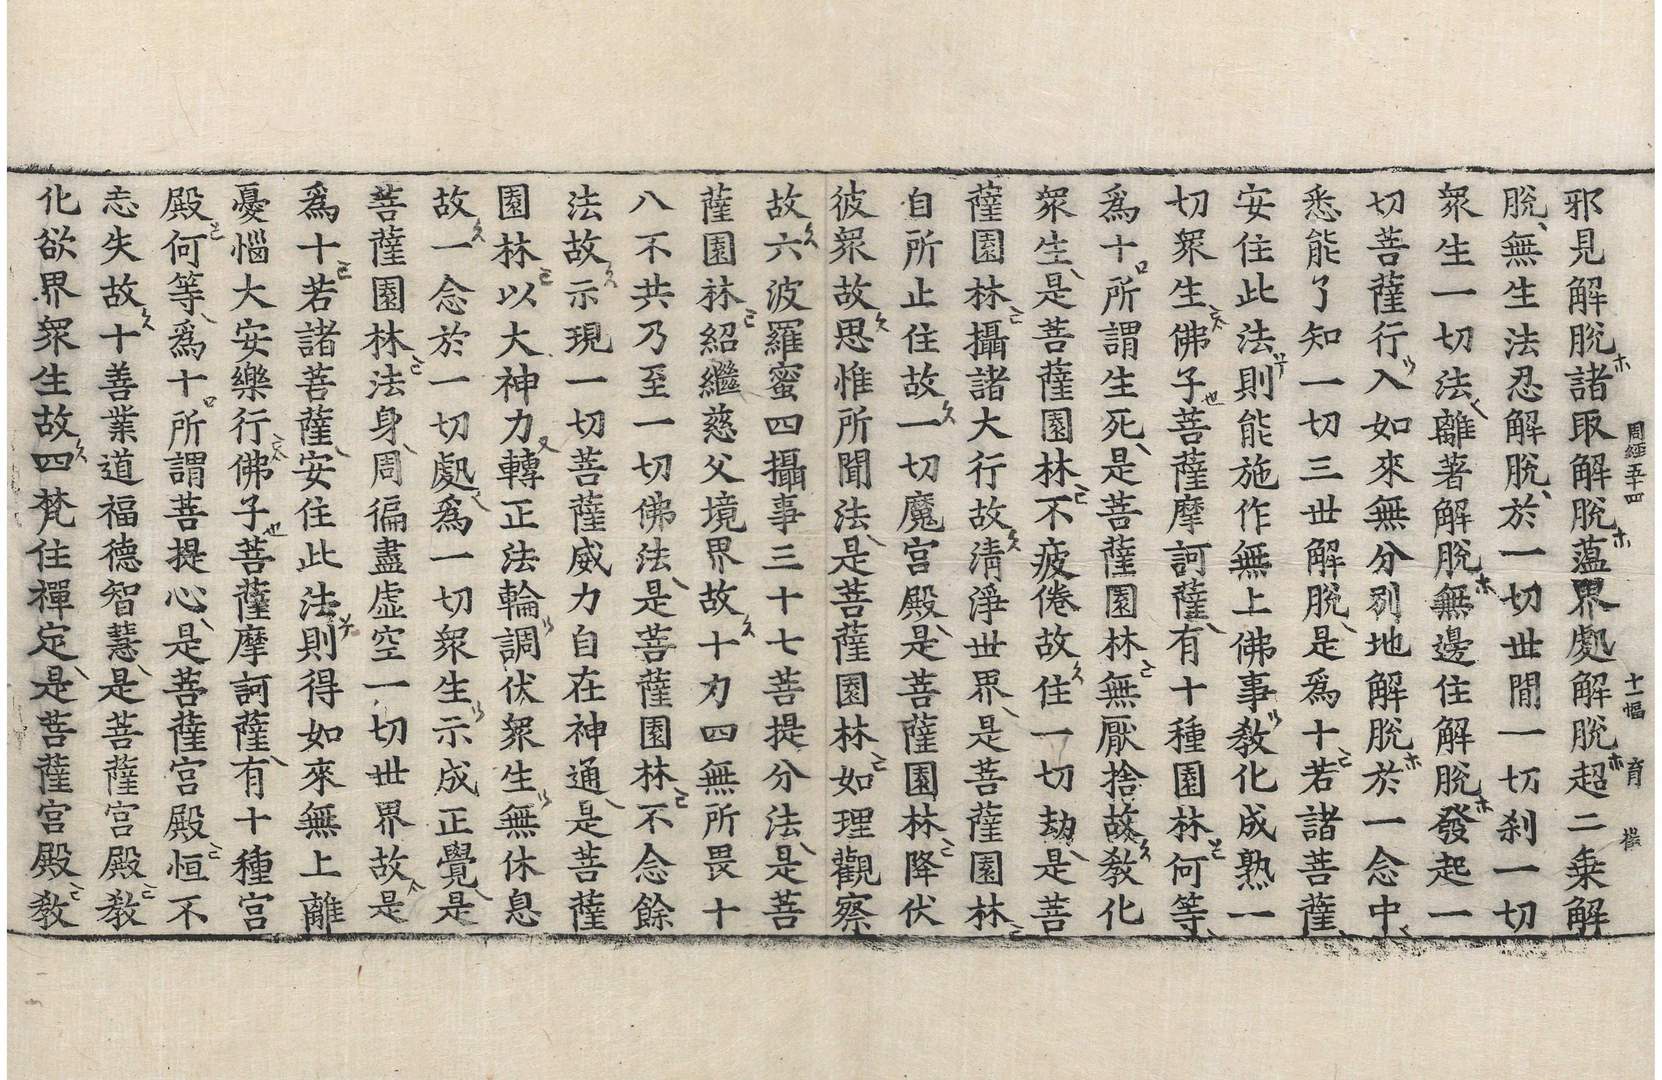 周經五十四 十一幅 育
邪見解脫諸取解脫蘊界處解脫超二乗解
脫無生法忍解脫於一切世閒一切刹一切
衆生一切法離著解脫無邊住解脫發起一
切菩薩行入如來無分別地解脫於一念中
悉能了知一切三世解脫是爲十若諸菩薩
安住此法則能施作無上佛事教化成熟一
切衆生佛子菩薩摩訶薩有十種園林何等
爲十所謂生死是菩薩園林無厭捨故教化
衆生是菩薩園林不疲倦故住一切劫是菩
薩園林攝諸大行故清淨世界是菩薩園林
自所止住故一切魔宮殿是菩薩園林降伏
彼衆故思惟所聞法是菩薩園林如理觀察
故六波羅蜜四攝事三十七菩提分法是菩
薩園林紹繼慈父境界故十力四無所畏十
八不共乃至一切佛法是菩薩園林不念餘
法故示現一切菩薩威力自在神通是菩薩
園林以大神力轉正法輪調伏衆生無休息
故一念於一切處爲一切衆生示成正覺是
菩薩園林法身周徧盡虛空一切世界故是
爲十若諸菩薩安住此法則得如來無上離
憂惱大安樂行佛子菩薩摩訶薩有十種宮
殿何等爲十所謂菩提心是菩薩宮殿恒不
忘失故十善業道福德智慧是菩薩宮殿教
化欲界衆生故四梵住禪定是菩薩宮殿教